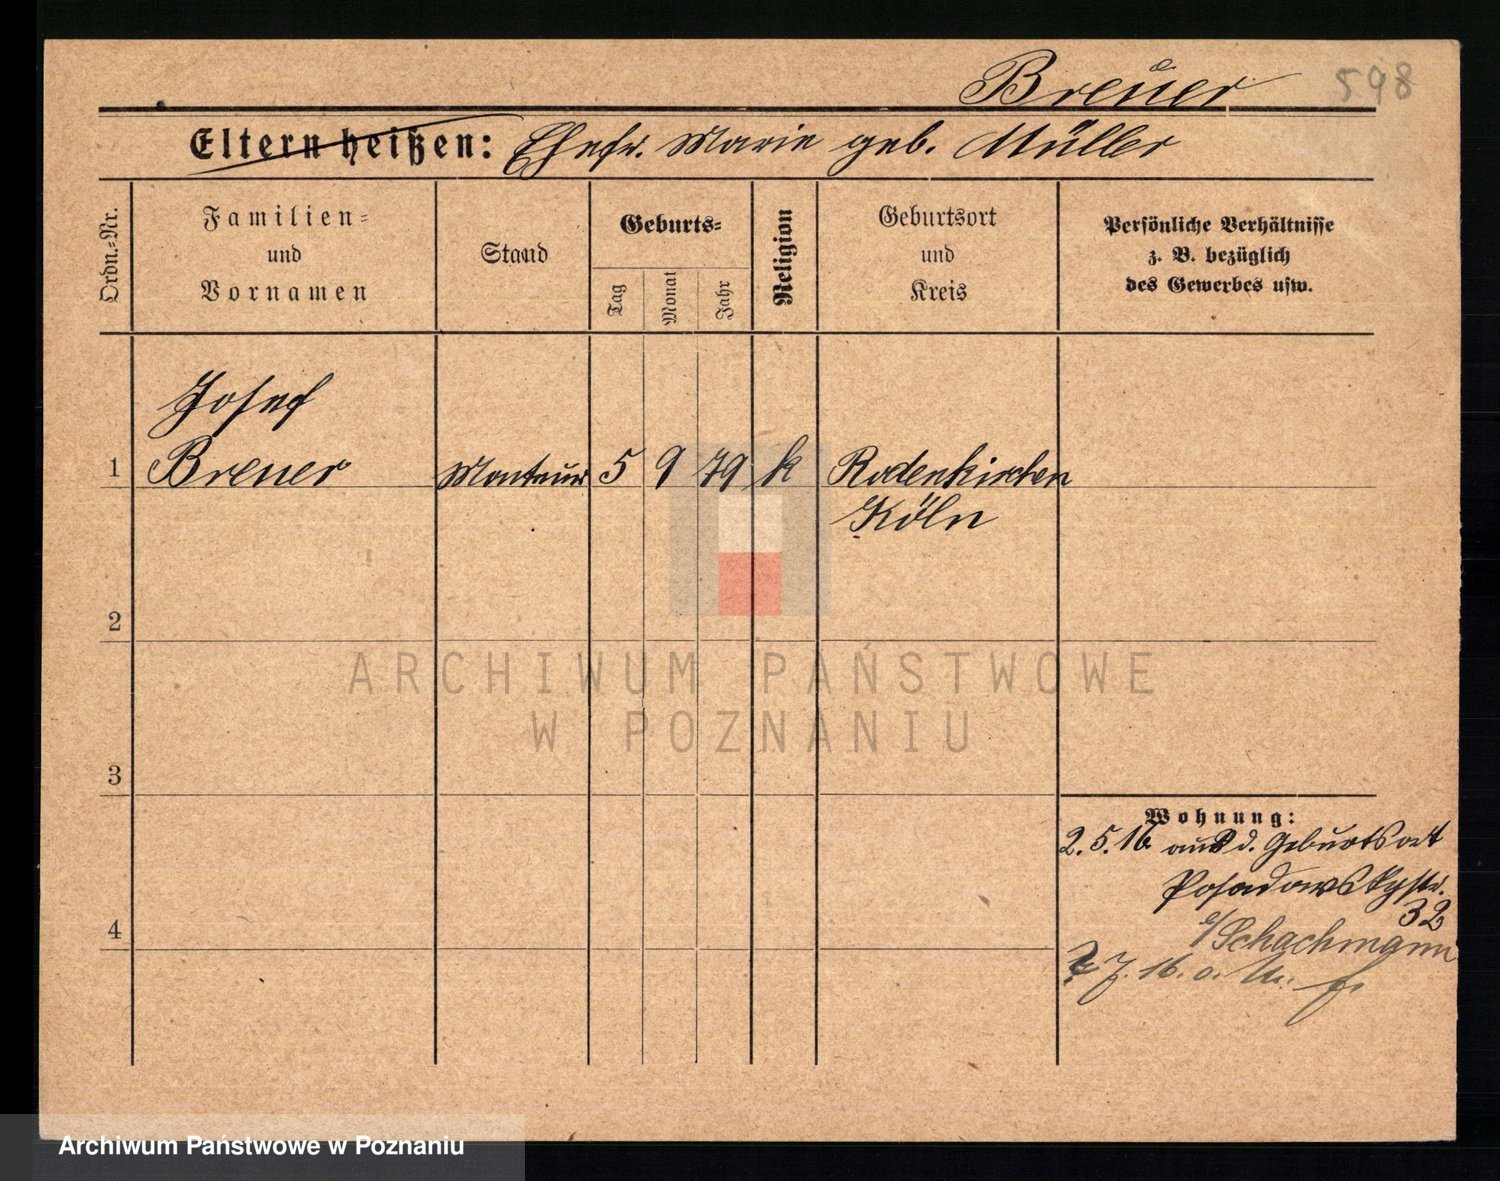 Breuer 598
Eltern heißen: Ehefr. Marie geb. Müller
Ordn.-Nr.
Familien-
und
Vornamen
Stand
Geburts-
Tag
Monat
Jahr
Religion
Geburtsort
und
Kreis
Persönliche Verhältnisse
z. B. bezüglich
des Gewerbes usw.
Josef
1 Breuer Monteur 5 9 79 k Rodenkirchen
Köln
2
3
4
Wohnung:
2.5.16 aus d. Geburtsort
Posadowskystr.
32
b/Schachmann
7. 16. o.
ARCHIWUM PAŃSTWOWE
W POZNANIU
Archiwum Państwowe w Poznaniu